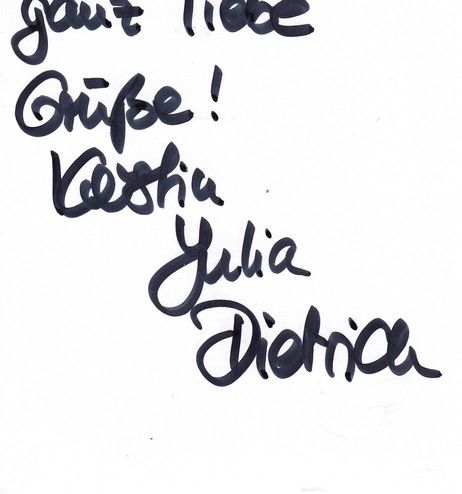 ganz liebe
Grüße!
Kerstin
Julia
Dietrich